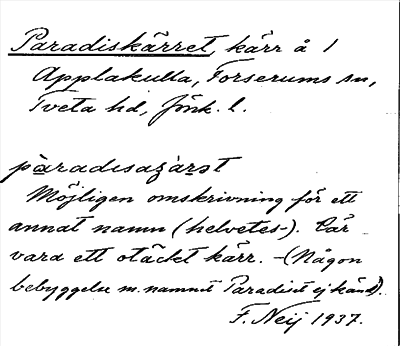 Paradiskärret, kärr å 1
Applakulla, Forserums sn,
Tveta hd, Jönk. l.
Möjligen omskrivning för ett
annat namn (helvetes-). Lär
vara ett otäckt kärr. - (Någon
bebyggelse m. namnet Paradiset ej känd).
F. Neij 1937.